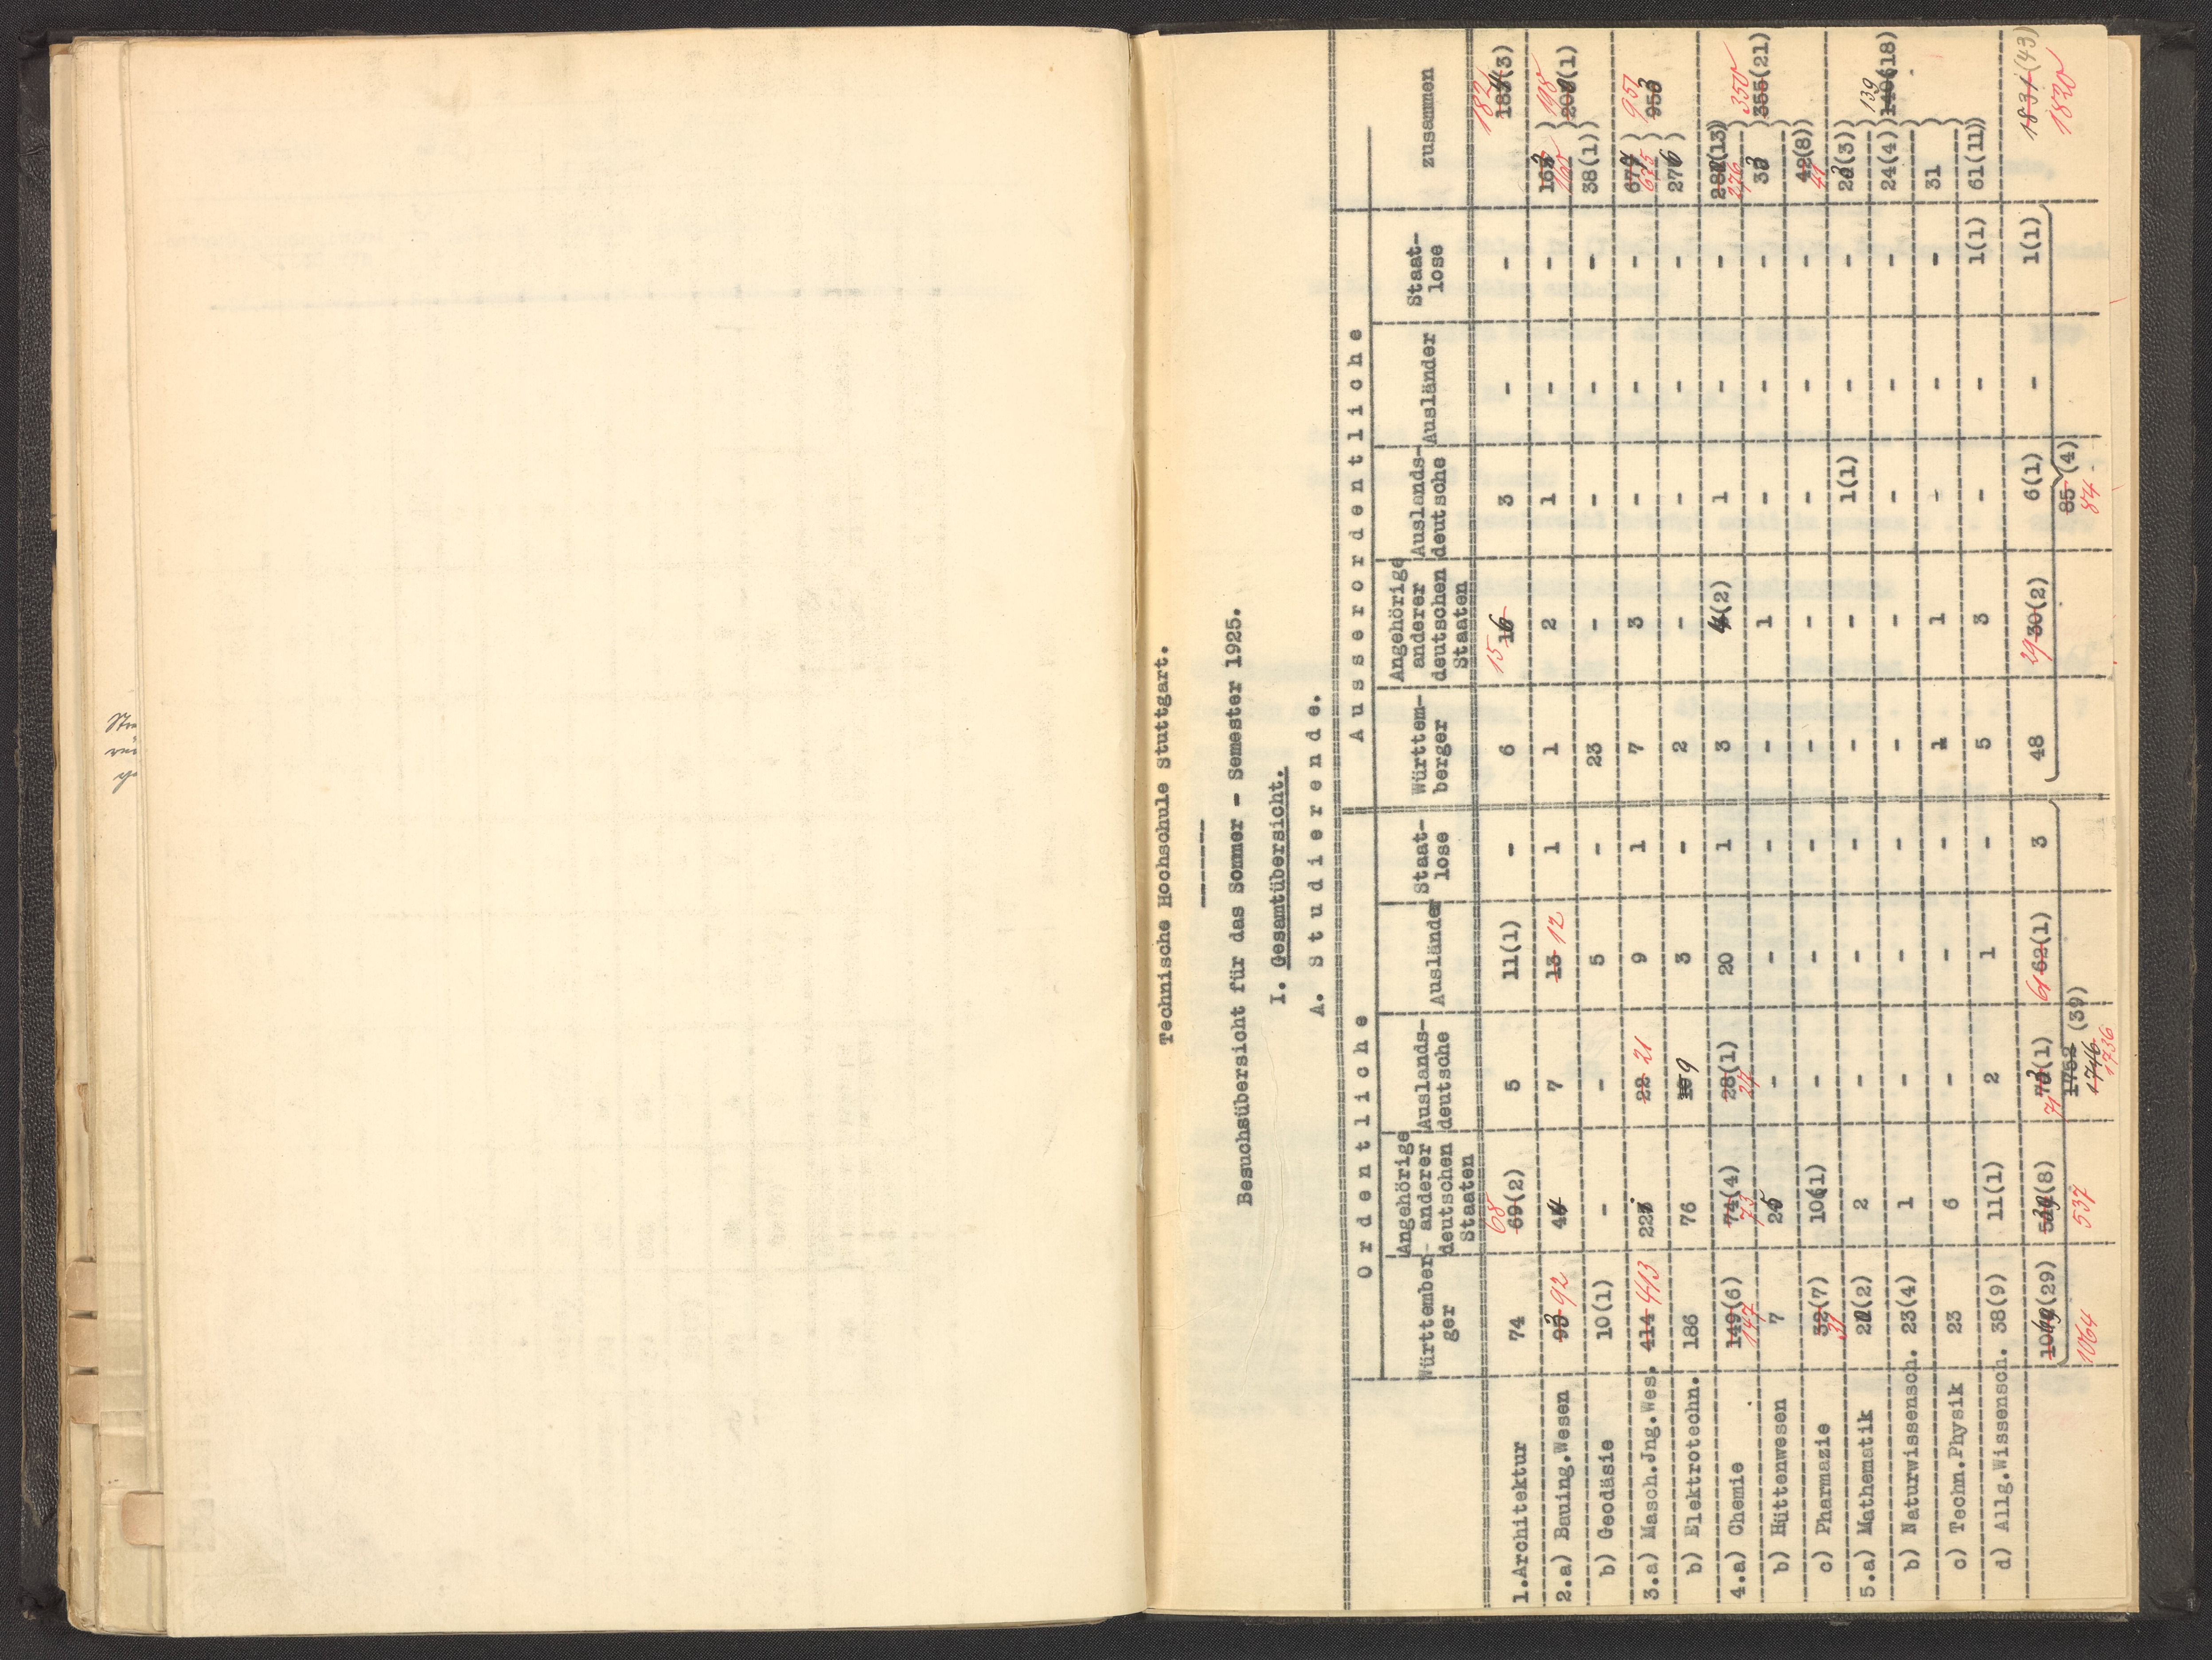 Technische Hochschule Stuttgart.
Besuchsübersicht für das Sommer - Semester 1925.
I. Gesamtübersicht.
A. Studierende.
Ordentliche | Ausserordentliche
Württemberger | Angehörige anderer deutschen Staaten | Auslandsdeutsche | Ausländer | Staatlose | Württemberger | Angehörige anderer deutschen Staaten | Auslandsdeutsche | Ausländer | Staatlose | zusammen
1. Architektur 74 68 69(2) 5 11(1) - 6 15 16 3 - - 182 (3)
2.a) Bauing.Wesen 93 92 7 13 12 1 1 2 1 - - 160 } 198 (1)
b) Geodäsie 10(1) - - 5 - 23 - - - - 38(1)
3.a) Masch.Jng.Wes. 414 413 22 21 9 1 7 3 - - - 675 } 951 953
b) Elektrotechn. 186 76 9 3 - 2 - - - - 276
4.a) Chemie 149(6) 147 74(4) 73 28(1) 27 20 1 3 4(2) 1 - - 276 (13) } 350 355(21)
b) Hüttenwesen 7 25 - - - - 1 - - - 33
c) Pharmazie 32(7) 31 10(1) - - - - - - - - 42(8) 41
5.a) Mathematik (2) 2 - - - - - 1(1) - - 23(3) } 139 140(18)
b) Naturwissensch. 23(4) 1 - - - - - - - - 24(4)
c) Techn.Physik 23 6 - - - 1 1 - - - 31
d) Allg.Wissensch. 38(9) 11(1) 2 1 - 5 3 - - 1(1) 61(11)
(29) (8) 71 (1) 61 62(1) 3 48 29 30(2) 6(1) - 1(1) 1831 (43)
1064 537 1762 (39) 85 (4) 1820
1746 84
1736